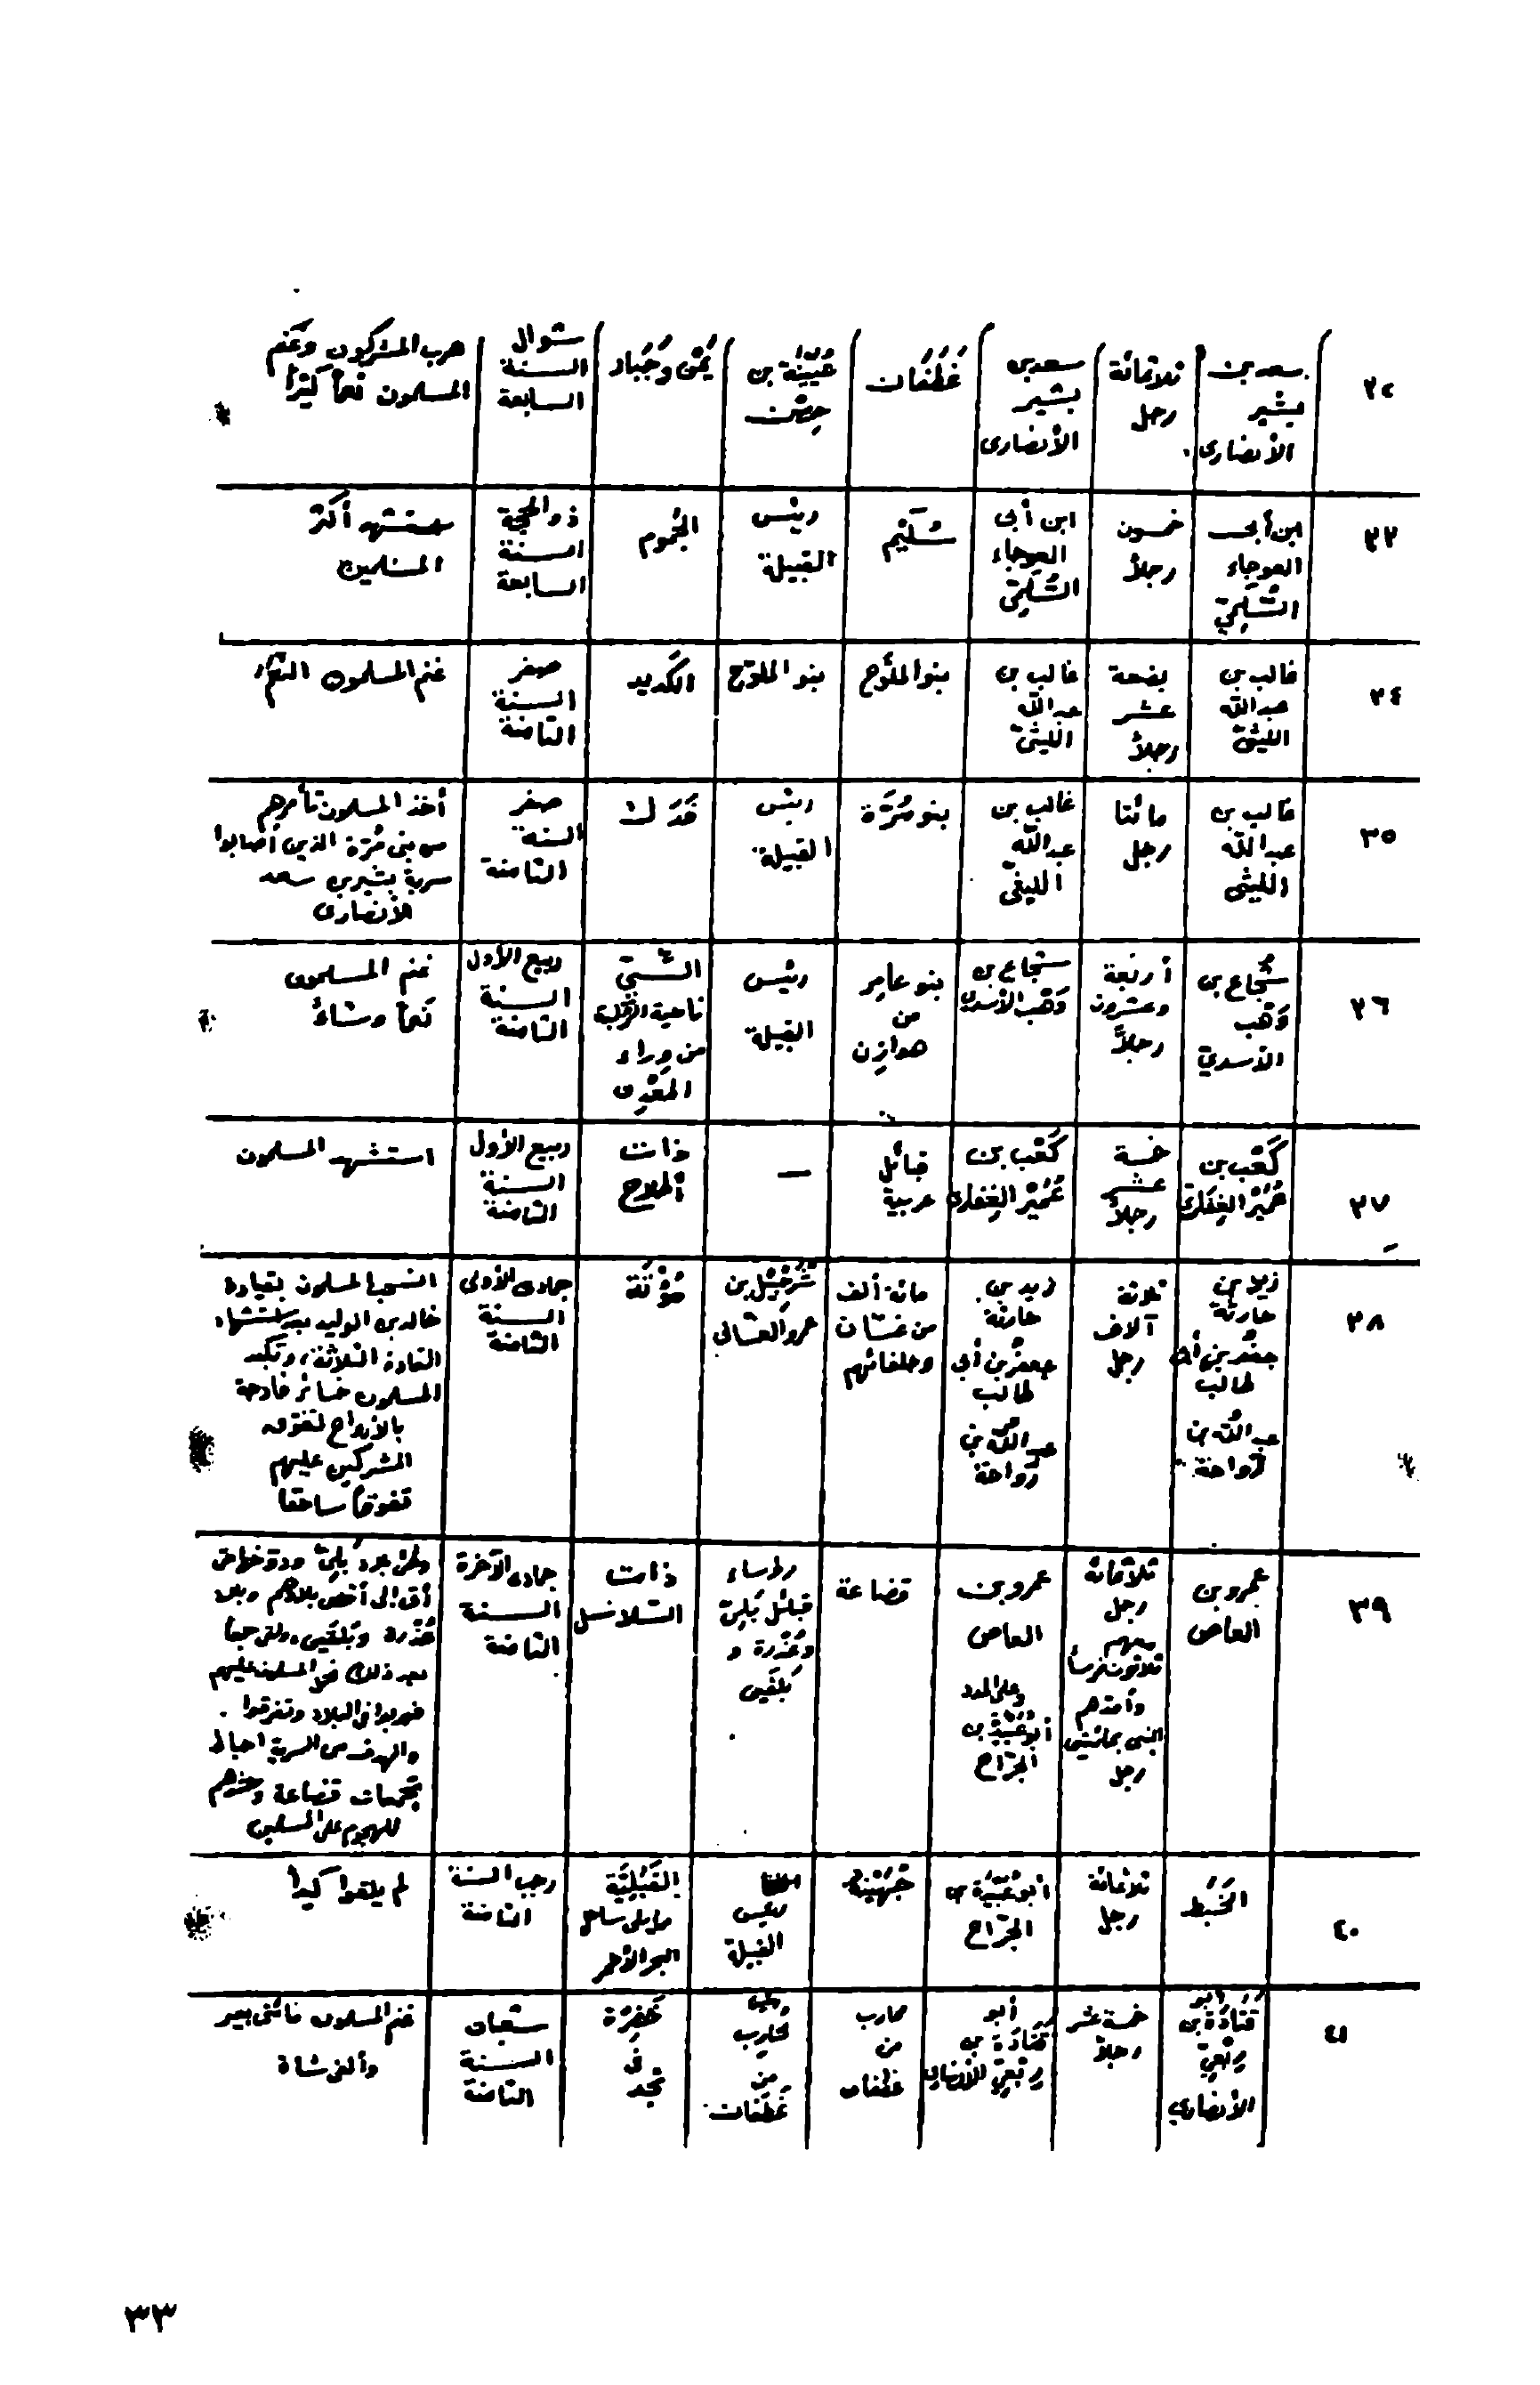 ٣٢
سعد بن
بشير
الأنصارى
ثلاثمائة
رجل
سعد بن
بشير
الأنصارى
غَطَفَان
عُيَيْنَة بن
حِصْن
يَمْن وَجَبَار
شوال
السنة
السابعة
هرب المشركون وغَنم
المسلمون نَعَماً كثيراً
٣٣
ابن أبى
العوجاء
السُّلَمِيّ
خمسون
رجلاً
ابن أبى
العوجاء
السُّلَمِيّ
سُلَيْم
رئيس
القبيلة
الجُموم
ذو الحجة
السنة
السابعة
استشهد أكثر
المسلمين
٣٤
غالب بن
عبد الله
الليثيّ
بضعة
عشر
رجلاً
غالب بن
عبد الله
الليثيّ
بنو الملوّح
بنو الملوّح
الكَديد
صفر
السنة
الثامنة
غنم المسلمون النَّعَم
٣٥
غالب بن
عبد الله
الليثى
مائتا
رجل
غالب بن
عبد الله
الليثى
بنو مُرَّة
رئيس
القبيلة
فَدَك
صفر
السنة
الثامنة
أخذ المسلمون ثأرهم
من بنى مُرَّة الذين أصابوا
سرية بشير بن سعد
الأنصارى
٣٦
شُجاع بن
وَهْب
الأسديّ
أربعة
وعشرون
رجلاً
شجاع بن
وَهْب الأسدى
بنو عامِر
من
هوازِن
رئيس
القبيلة
السِّيّ
ناحية الرُّكبة
من وراء
المَعْدِن
ربيع الأول
السنة
الثامنة
غنم المسلمون
نَعَماً وشاءً
٣٧
كَعْب بن
عُمَيْر الغِفَارى
خمسة
عشر
رجلاً
كَعْب بن
عُمَيْر الغِفارى
قبائل
عربية
—
ذات
أطلاح
ربيع الأول
السنة
الثامنة
استشهد المسلمون
٣٨
زيد بن
حارثة
جعفر بن أبى
طالب
عبد الله بن
رَواحة
ثلاثة
آلاف
رجل
زيد بن
حارثة
جعفر بن أبى
طالب
عبد الله بن
رَواحة
مائة ألف
من غسّان
وحلفائهم
شُرَحْبيل بن
عمرو الغسّانى
مُؤْتَة
جمادى الأولى
السنة
الثامنة
انسحب المسلمون بقيادة
خالد بن الوليد بعد استشهاد
القادة الثلاثة، وتكبد
المسلمون خسائر فادحة
بالأرواح لتفوق
المشركين عليهم
تفوقاً ساحقاً
٣٩
عمرو بن
العاص
ثلاثمائة
رجل
معهم
ثلاثون فرساً
وأمدهم
النبى بمائتى
رجل
عمرو بن
العاص
وعلى المدد
أبو عُبَيْدَة بن
الجرّاح
قضاعة
رؤساء
قبائل بَلِيّ
وعُذْرة و
بَلْقَين
ذات
السّلاسل
جمادى الآخرة
السنة
الثامنة
وطئ عمرو بَلِيّ ودوخها حتى
أتى إلى أقصى بلادهم وبلاد
عُذْرة وبَلقَين، ولقى جمعاً
بعد ذلك فحمل المسلمون عليهم
فهربوا فى البلاد وتفرقوا.
والهدف من السرية احباط
تجمعات قضاعة وحشدهم
للهجوم على المسلمين
٤٠
الخَبَط
ثلاثمائة
رجل
أبو عُبَيْدَة بن
الجرّاح
جُهَيْنَة
رئيس
القبيلة
القَبَلِيَّة
مما يلى ساحل
البحر الأحمر
رجب السنة
الثامنة
لم يلقوا كيداً
٤١
أبو
قتادَة بن
رِبْعِيّ
الأنصاري
خمسة عشر
رجلاً
أبو
قتادَة بن
رِبْعِيّ الأنصارى
محارب
من
غطفان
محارب
من
غَطَفَان
خَضِرَة
فى
نجد
شعبان
السنة
الثامنة
غنم المسلمون مائتى بعير
وألفى شاة
٣٣